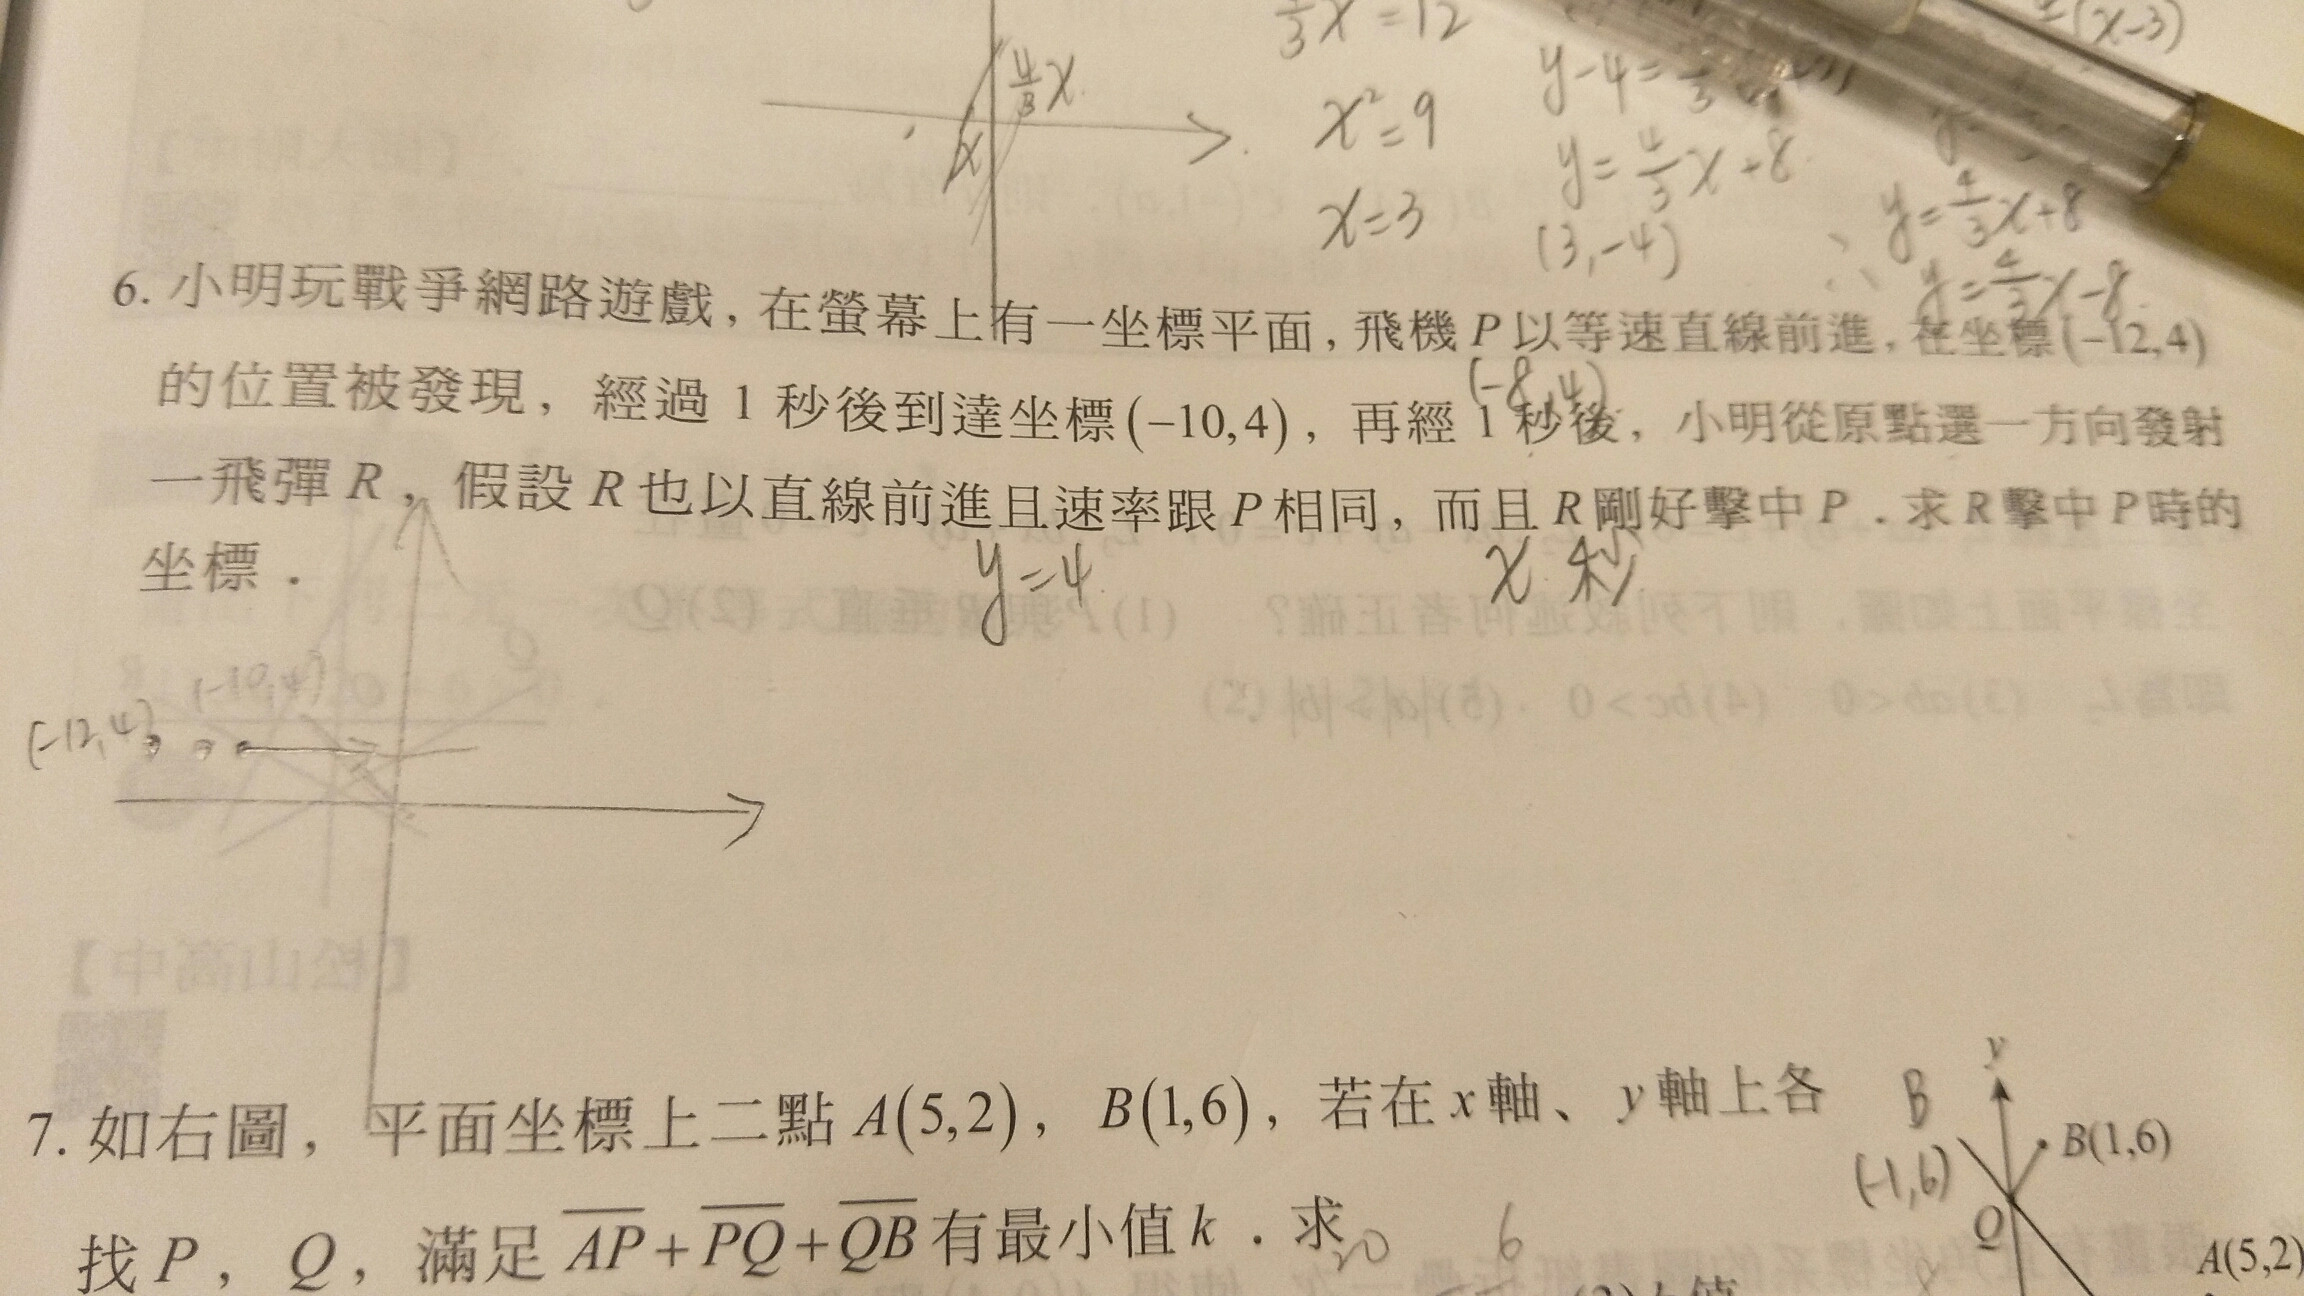 x²=9
x=3
y=4/3x+8
(3,-4)
∴ y=4/3x+8
y=4/3x-8
4/3x
x
6. 小明玩戰爭網路遊戲，在螢幕上有一坐標平面，飛機 P 以等速直線前進，在坐標(−12,4)
(-8,4)
的位置被發現，經過 1 秒後到達坐標(−10,4)，再經 1 秒後，小明從原點選一方向發射
一飛彈 R，假設 R 也以直線前進且速率跟 P 相同，而且 R 剛好擊中 P．求 R 擊中 P 時的
坐標．
y=4
x 秒
(-10,4)
(-12,4)
7. 如右圖，平面坐標上二點 A(5,2)，B(1,6)，若在 x 軸、y 軸上各
找 P，Q，滿足 AP+PQ+QB 有最小值 k．求
B
(-1,6)
y
B(1,6)
Q
A(5,2)